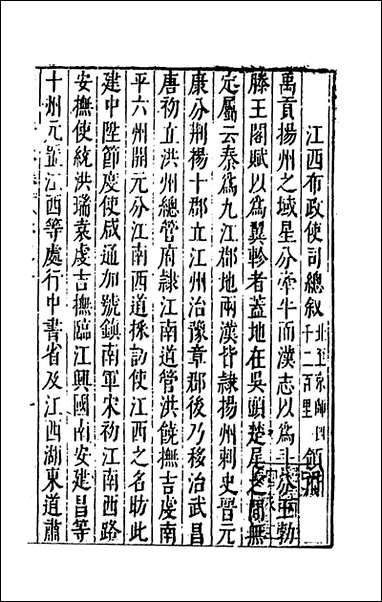 江西布政使司總叙 北至京師四千二百里
禹貢揚州之域星分牽牛而漢志以爲斗
滕王閣賦以爲翼軫者蓋地在吳頭楚尾之間無
定屬云秦爲九江郡地兩漢皆隸揚州刺史晉元
康分荆揚十郡立江州治豫章郡後乃移治武昌
唐初立洪州總管府隷江南道管洪饒撫吉虔南
平六州開元分江南西道採訪使江西之名昉此
建中陞節度使咸通加號鎮南軍宋初江南西路
安撫使統洪瑞袁虔吉撫臨江興國南安建昌等
十州元置江西等處行中書省及江西湖東道肅